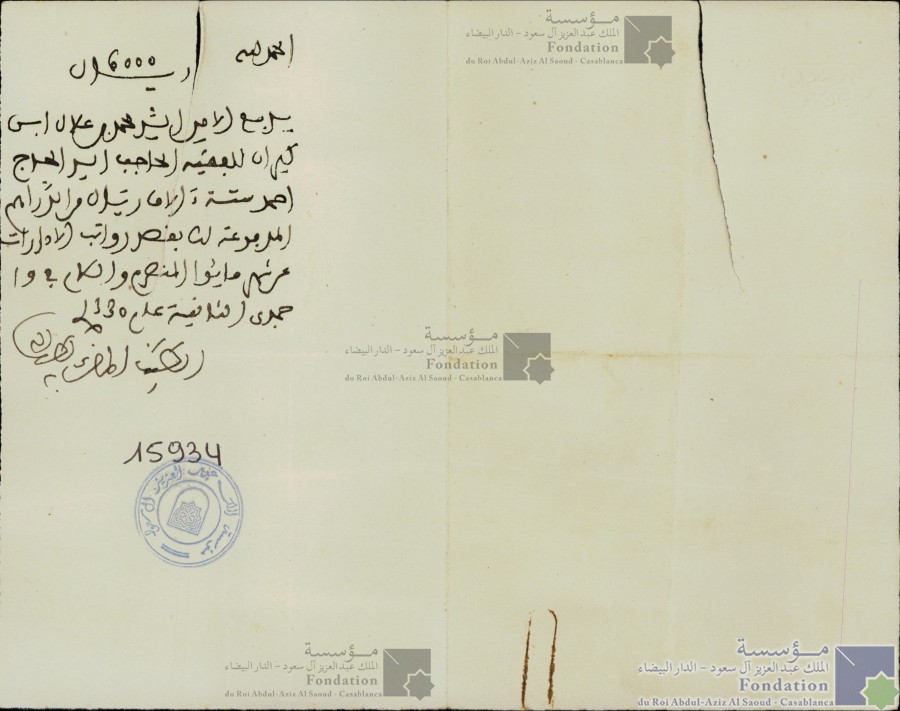 الحمد لله
6000 ريال
يدفع الامين السيد محمد بن علال ابن
كيران للفقيه الحاجب السيد الحاج
احمد ستة الاف ريال من الدراهم
المدفوعة لنا بقصد رواتب الادارات
عن شهر مايوا المنصرم والسلام في 15
جمدى الثانية عام 1330
15934
مؤسسة الملك عبد العزيز آل سعود
مؤسسة
الملك عبد العزيز آل سعود - الدار البيضاء
Fondation
du Roi Abdul-Aziz Al Saoud - Casablanca
مؤسسة
الملك عبد العزيز آل سعود - الدار البيضاء
Fondation
du Roi Abdul-Aziz Al Saoud - Casablanca
مؤسسة
الملك عبد العزيز آل سعود - الدار البيضاء
Fondation
du Roi Abdul-Aziz Al Saoud - Casablanca
مؤسسة
الملك عبد العزيز آل سعود - الدار البيضاء
Fondation
du Roi Abdul-Aziz Al Saoud - Casablanca